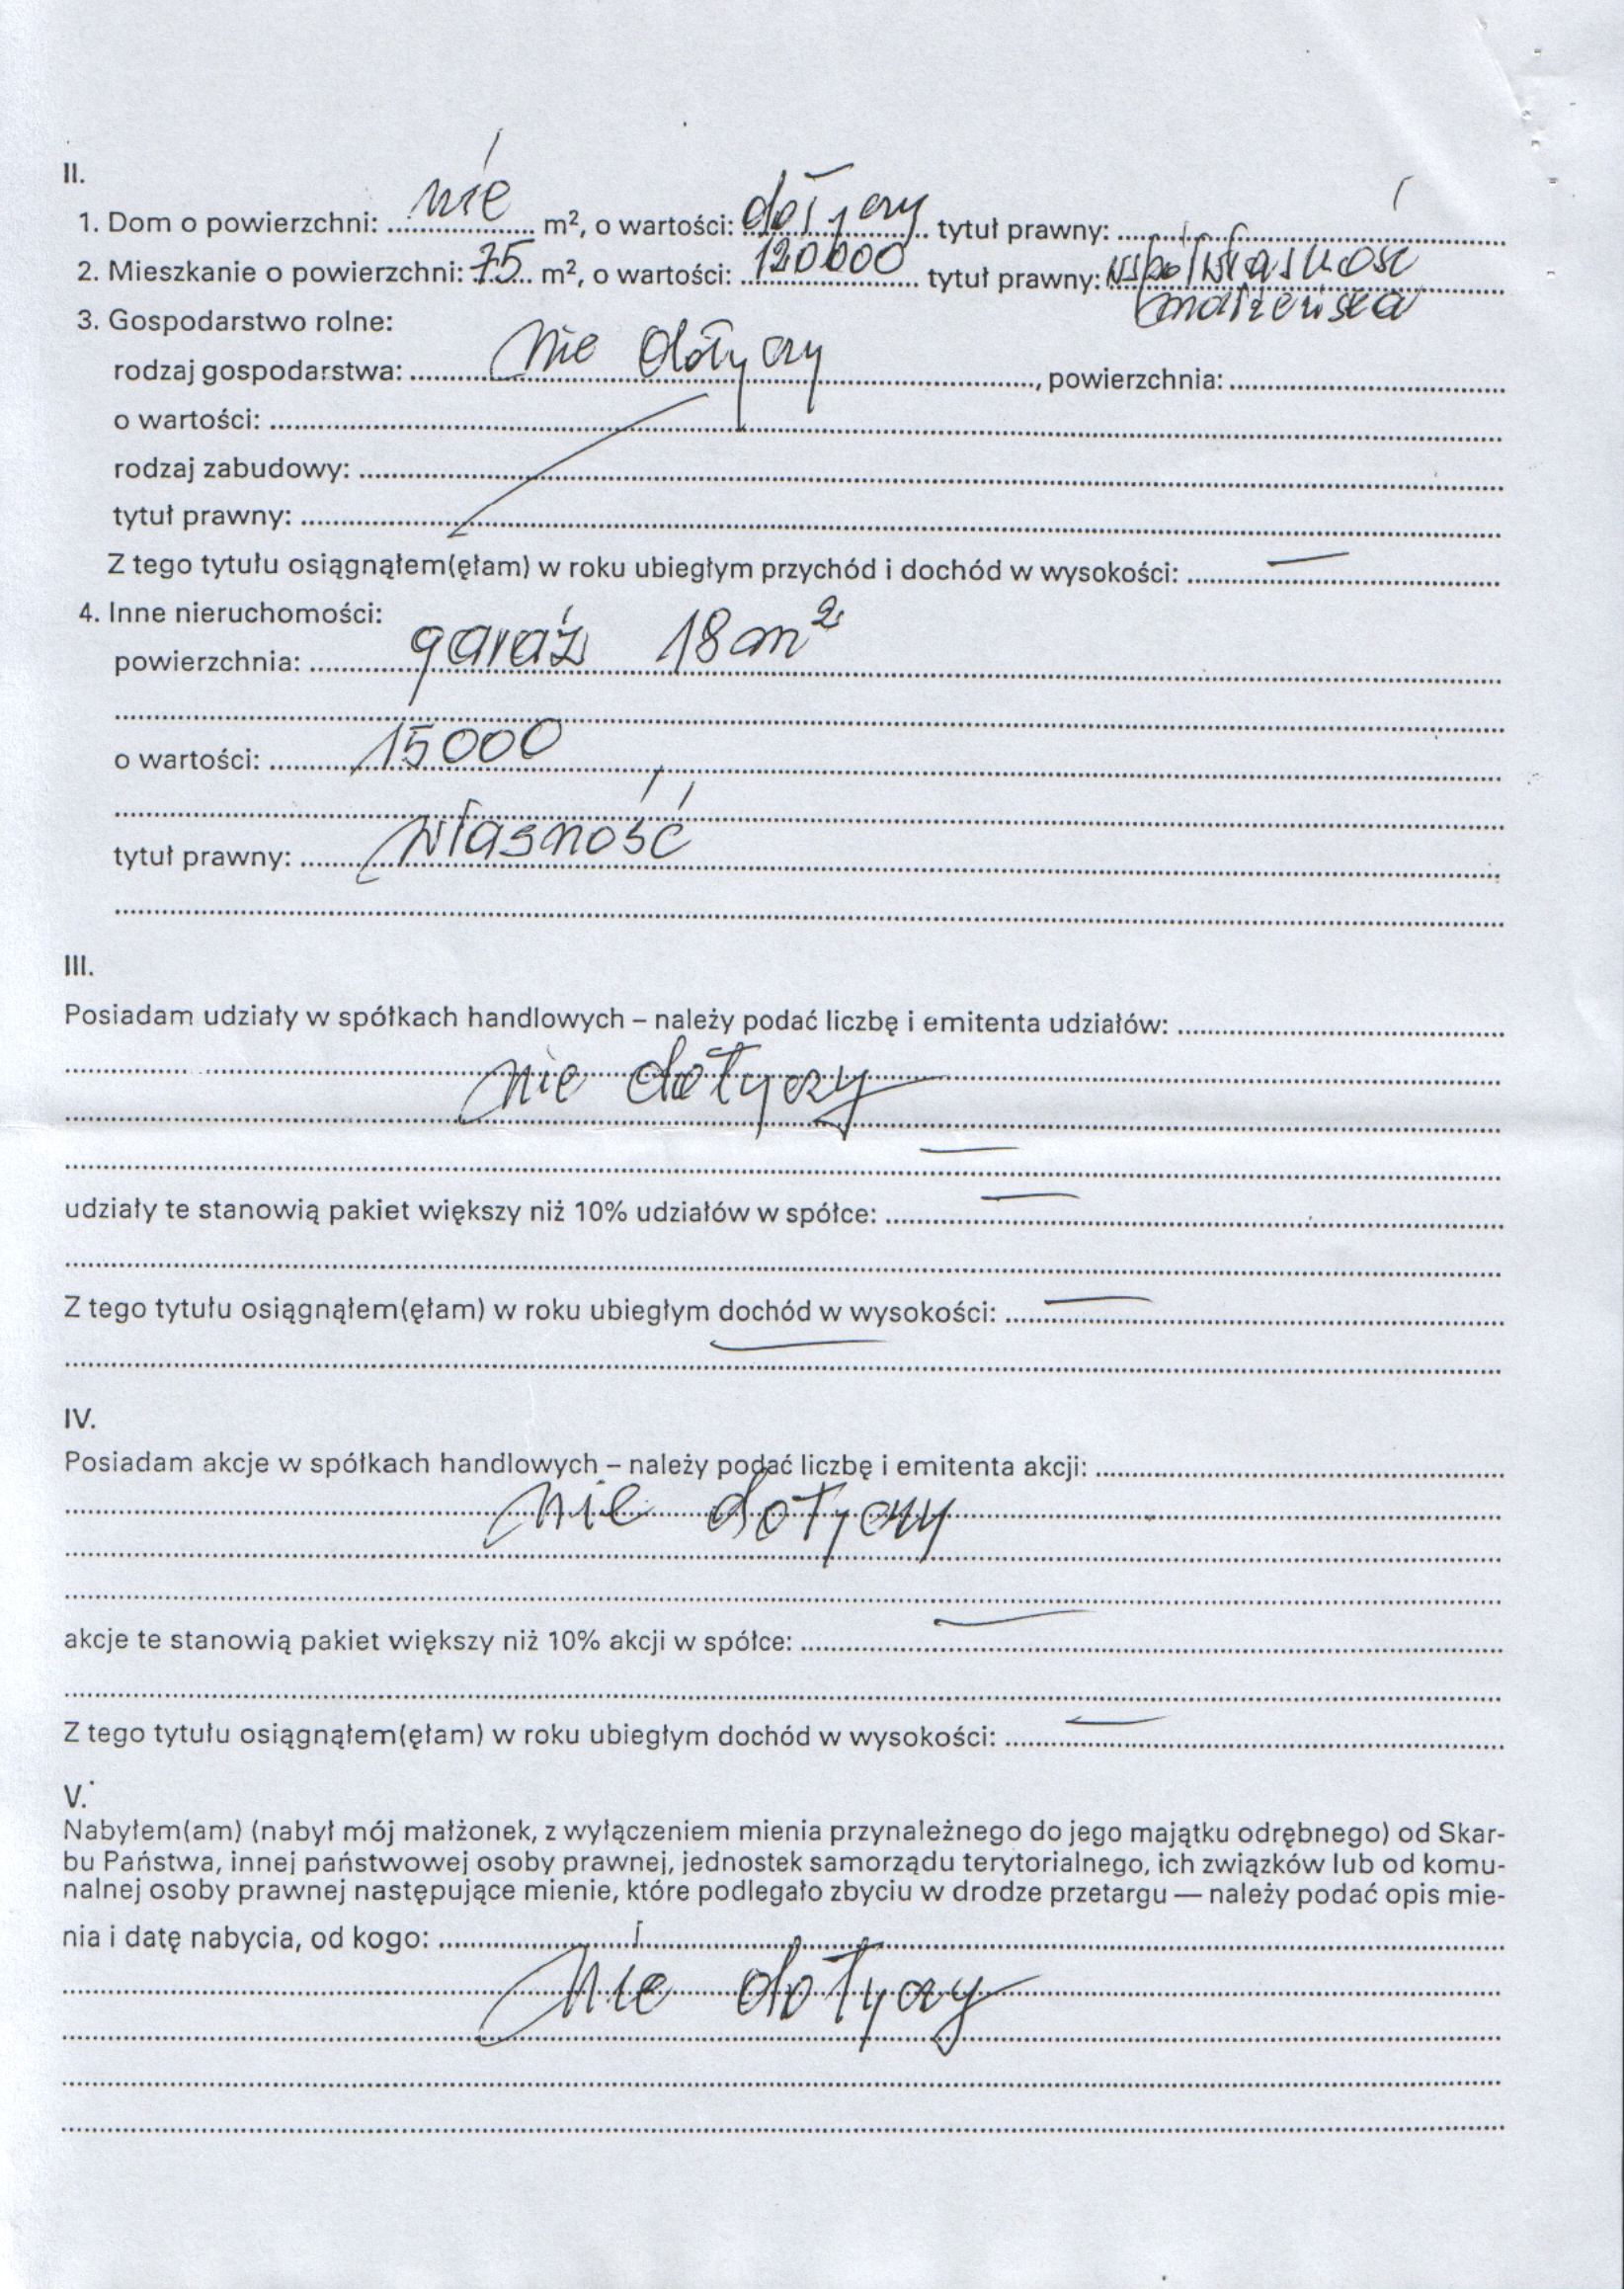 II.
1. Dom o powierzchni: nie m², o wartości: dotyczy tytuł prawny:
2. Mieszkanie o powierzchni: 75 m², o wartości: 120000 tytuł prawny: współwłasność
małżeńska
3. Gospodarstwo rolne:
rodzaj gospodarstwa: nie dotyczy, powierzchnia:
o wartości:
rodzaj zabudowy:
tytuł prawny:
Z tego tytułu osiągnąłem(ęłam) w roku ubiegłym przychód i dochód w wysokości: —
4. Inne nieruchomości:
powierzchnia: garaż 18 m²
o wartości: 15000
tytuł prawny: własność
III.
Posiadam udziały w spółkach handlowych – należy podać liczbę i emitenta udziałów:
nie dotyczy
—
udziały te stanowią pakiet większy niż 10% udziałów w spółce: —
Z tego tytułu osiągnąłem(ęłam) w roku ubiegłym dochód w wysokości: —
—
IV.
Posiadam akcje w spółkach handlowych – należy podać liczbę i emitenta akcji:
nie dotyczy
akcje te stanowią pakiet większy niż 10% akcji w spółce: —
Z tego tytułu osiągnąłem(ęłam) w roku ubiegłym dochód w wysokości: —
V.
Nabyłem(am) (nabył mój małżonek, z wyłączeniem mienia przynależnego do jego majątku odrębnego) od Skar-
bu Państwa, innej państwowej osoby prawnej, jednostek samorządu terytorialnego, ich związków lub od komu-
nalnej osoby prawnej następujące mienie, które podlegało zbyciu w drodze przetargu — należy podać opis mie-
nia i datę nabycia, od kogo:
nie dotyczy